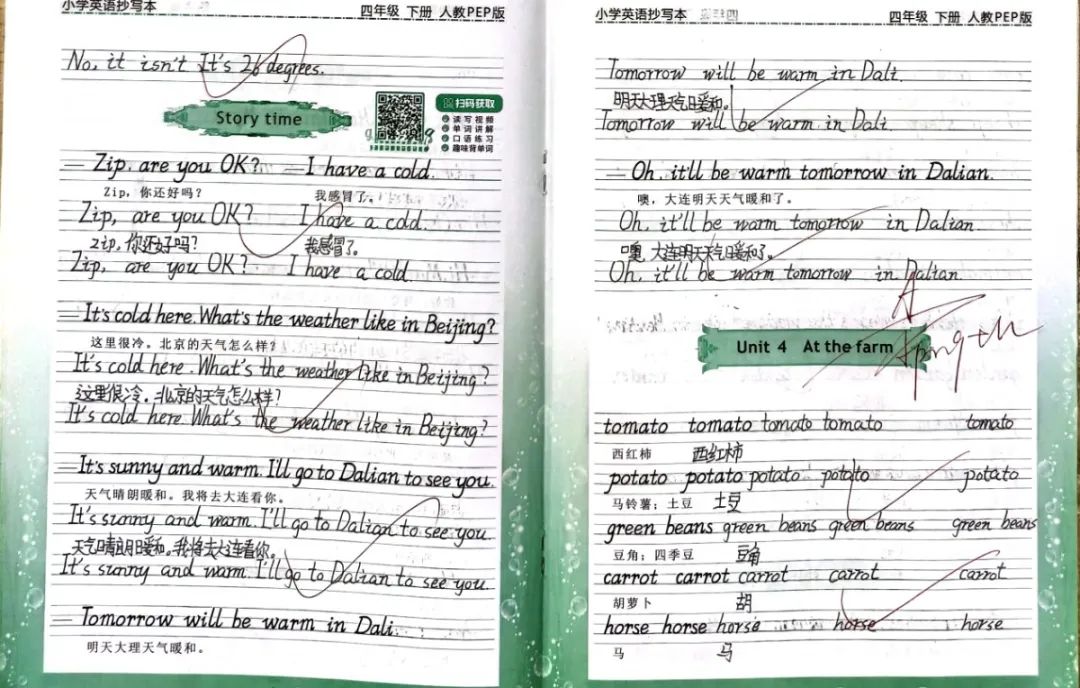 小学英语抄写本
四年级 下册 人教PEP版
No, it isn't It's 26 degrees.
Story time
扫码获取
读写视频
单词讲解
口语练习
趣味背单词
— Zip, are you OK? — I have a cold.
Zip，你还好吗？ 我感冒了。
Zip, are you OK? I have a cold.
Zip, 你还好吗? 我感冒了。
Zip, are you OK? I have a cold
— It's cold here. What's the weather like in Beijing?
这里很冷。北京的天气怎么样？
It's cold here. What's the weather like in Beijing?
这里很冷。北京的天气怎么样?
It's cold here. What's the weather like in Beijing?
— It's sunny and warm. I'll go to Dalian to see you.
天气晴朗暖和。我将去大连看你。
It's sunny and warm. I'll go to Dalian to see you.
天气晴朗暖和。我将去大连看你。
It's sunny and warm. I'll go to Dalian to see you.
— Tomorrow will be warm in Dali.
明天大理天气暖和。
小学英语抄写本
四年级 下册 人教PEP版
Tomorrow will be warm in Dali.
明天大理天气暖和。
Tomorrow will be warm in Dali.
— Oh, it'll be warm tomorrow in Dalian.
噢，大连明天天气暖和了。
Oh, it'll be warm tomorrow in Dalian.
噢, 大连明天天气暖和了。
Oh, it'll be warm tomorrow in Dalian.
A
Unit 4 At the farm
tomato tomato tomato tomato tomato
西红柿 西红柿
potato potato potato potato potato
马铃薯；土豆 土豆
green beans green beans green beans green beans
豆角；四季豆 豆角
carrot carrot carrot carrot carrot
胡萝卜 胡
horse horse horse horse horse
马 马